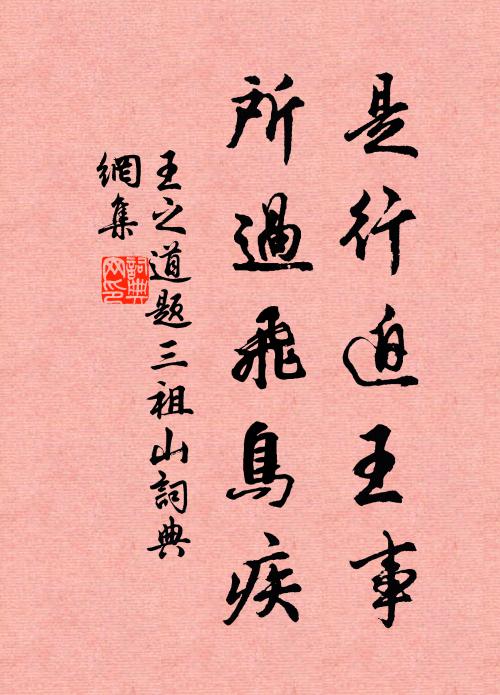 是行迫王事
所過飛鳥疾
王之道題三祖山詞典
網集
詞典網印